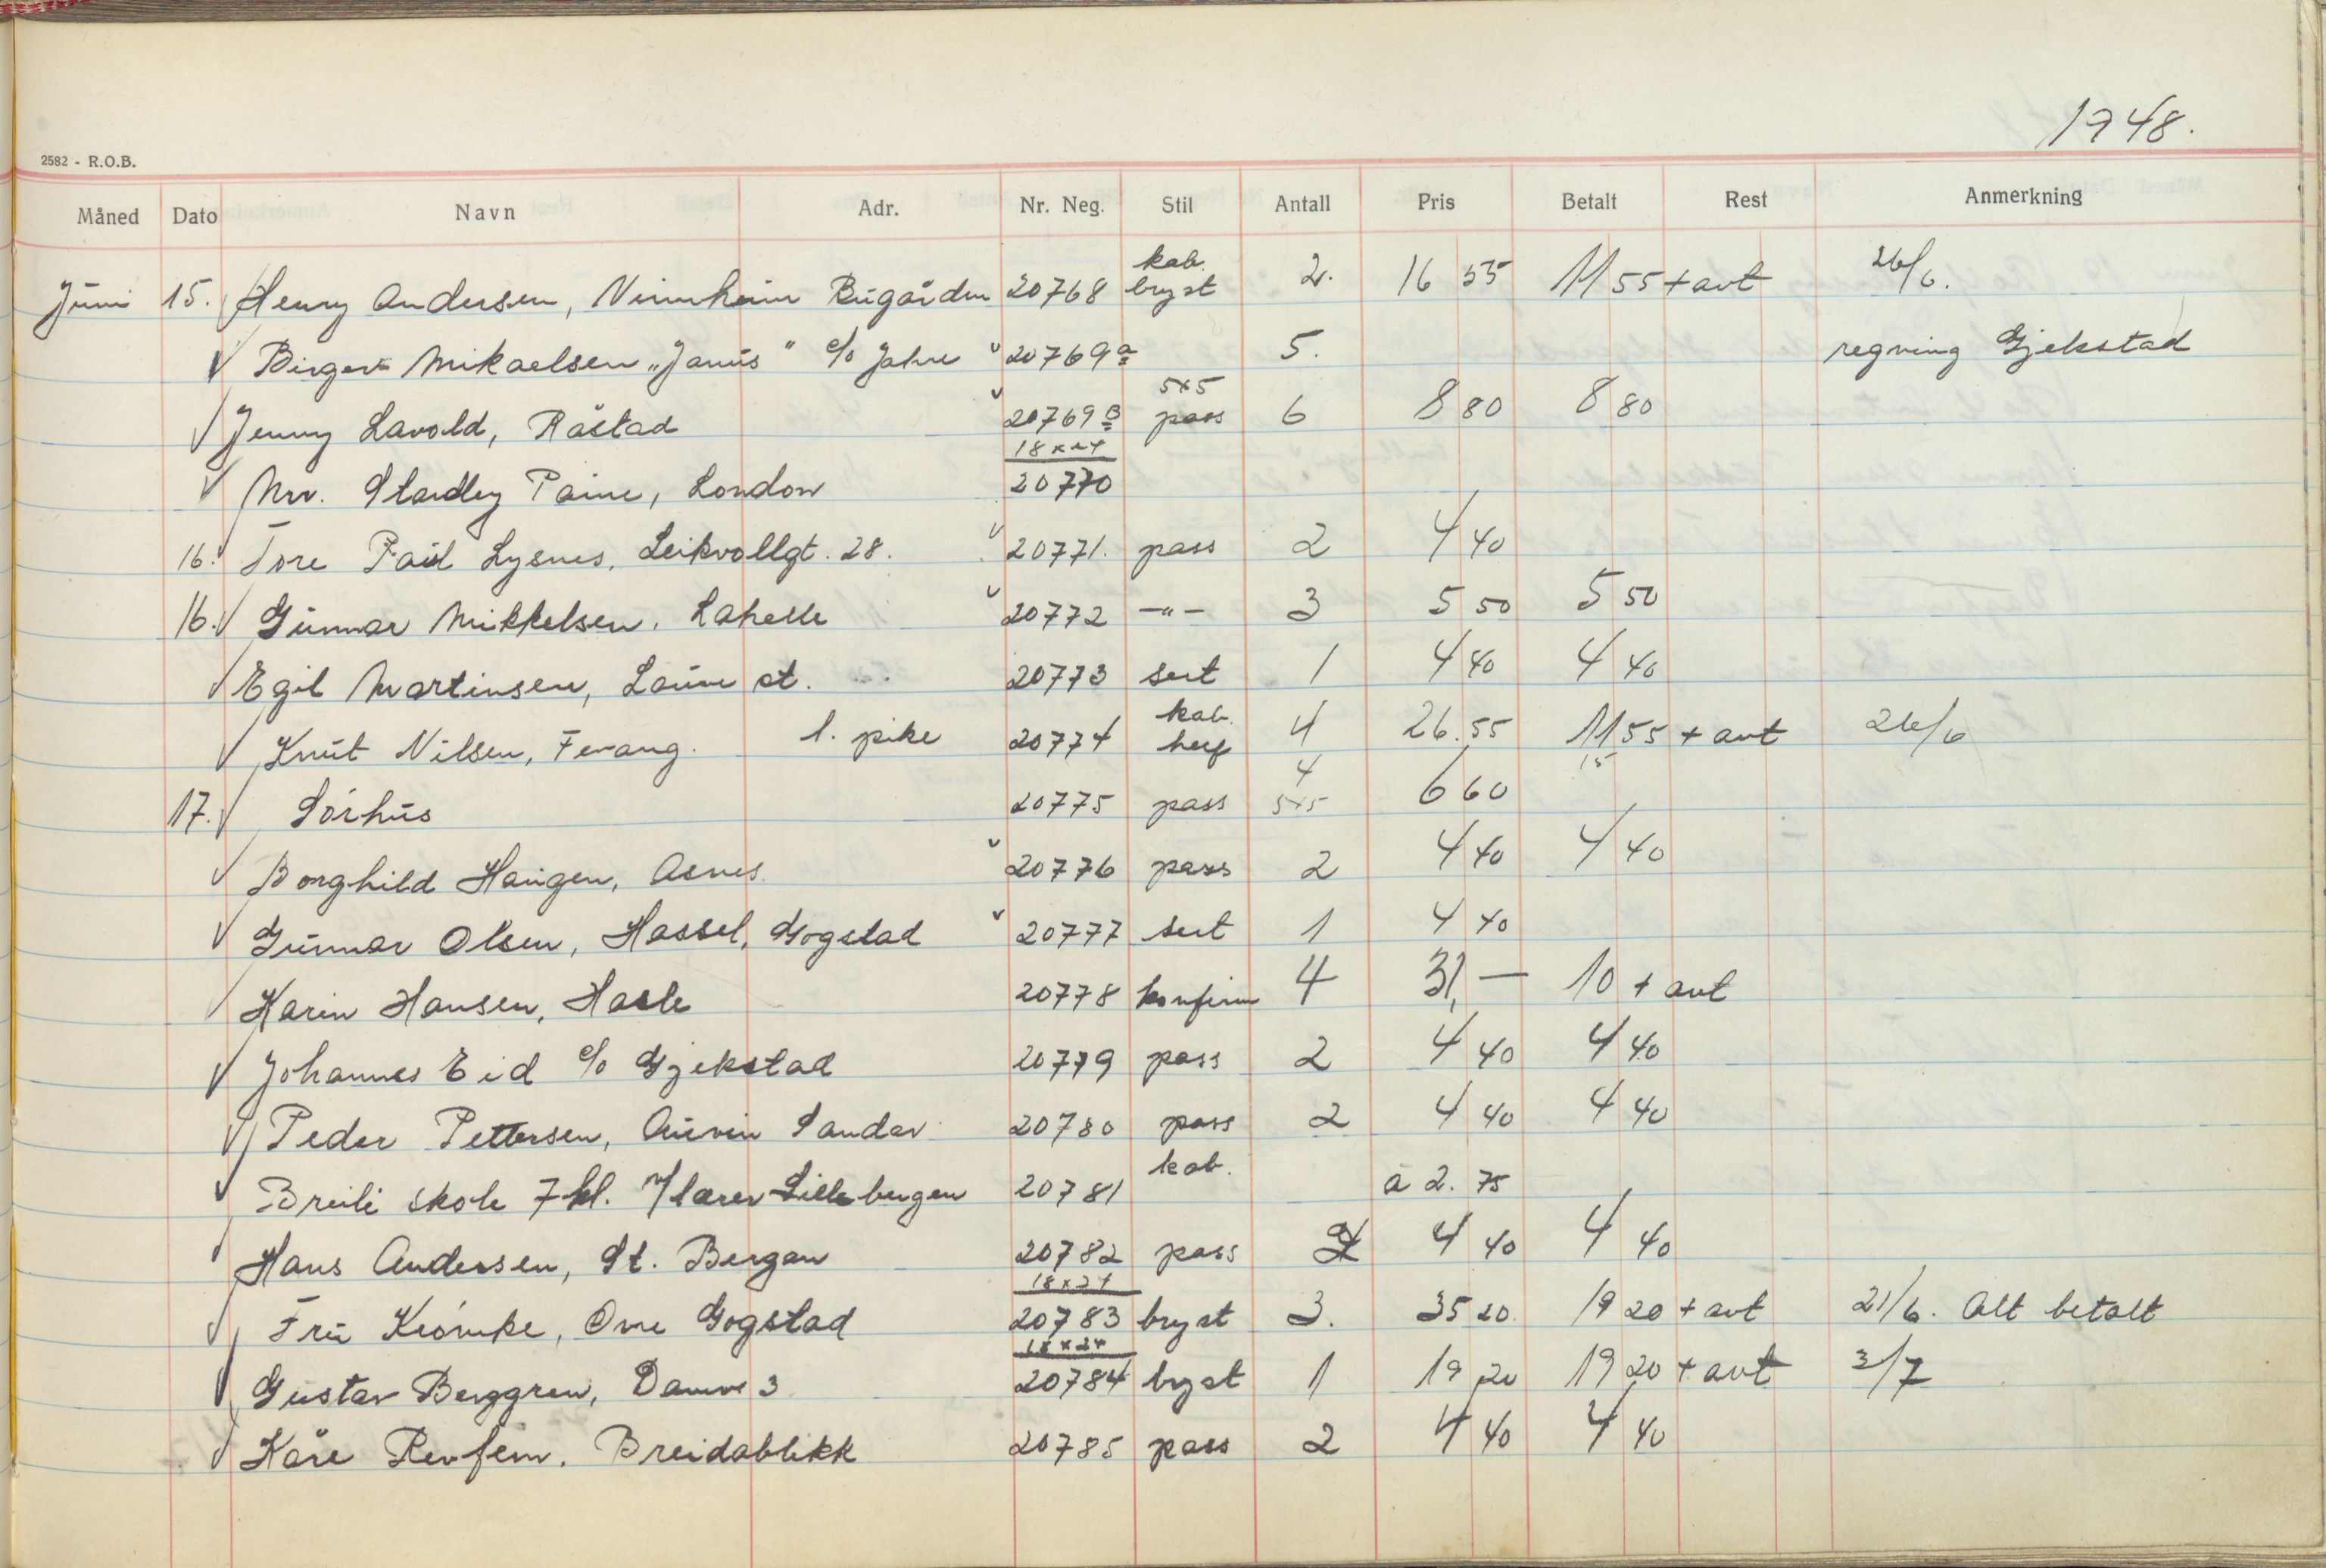 1948.
2582 - R.O.B.
Måned Dato Navn Adr. Nr. Neg. Stil Antall Pris Betalt Rest Anmerkning
Juni 15. Henry Andersen, Bugården 20768 kab. bryst 2. 16 55 11 55 + avt 26/6.
Birger Mikaelsen "Janus" c/o Jahre 20769a 5. regning Gjekstad
Jenny Lavold, Råstad 20769B 5x5 pass 6 8 80 8 80
Mr. Standley Paine, London 18x24 20770
16. Tore Paul Lysnes, Leikvollgt. 28. 20771. pass 2 4 40
16. Gunnar Mikkelsen, Lahelle 20772 -"- 3 5 50 5 50
Egil Martinsen, Lauve st. 20773 sert 1 4 40 4 40
Knut Nilsen, Fevang. l. pike 20774 kab. helf 4 26.55 11 55 + avt 26/6
15
17. Sörhus 20775 pass 4 5x5 6 60
Borghild Haugen, Asnes. 20776 pass 2 4 40 4 40
Gunnar Olsen, Hassel, Gogstad 20777 sert 1 4 40
Karin Hansen, Hasle 20778 konfirm 4 31,— 10 + avt
Johannes Eid c/o Gjekstad 20779 pass 2 4 40 4 40
Peder Pettersen, Sandar 20780 pass 2 4 40 4 40
Breili skole 7 kl. v/lærer Lillebergen 20781 kab. à 2. 75
Hans Andersen, St. Bergan 20782 pass 2 4 40 4 40
Fru Krömke, Ovre Gogstad 18x24 20783 bryst 3. 35 20. 19 20 + avt 21/6. Alt betalt
Gustav Berggren, 3 18x24 20784 bryst 1 19 20 19 20 + avt 3/7
Kåre Revfem, Breidablikk 20785 pass 2 4 40 4 40